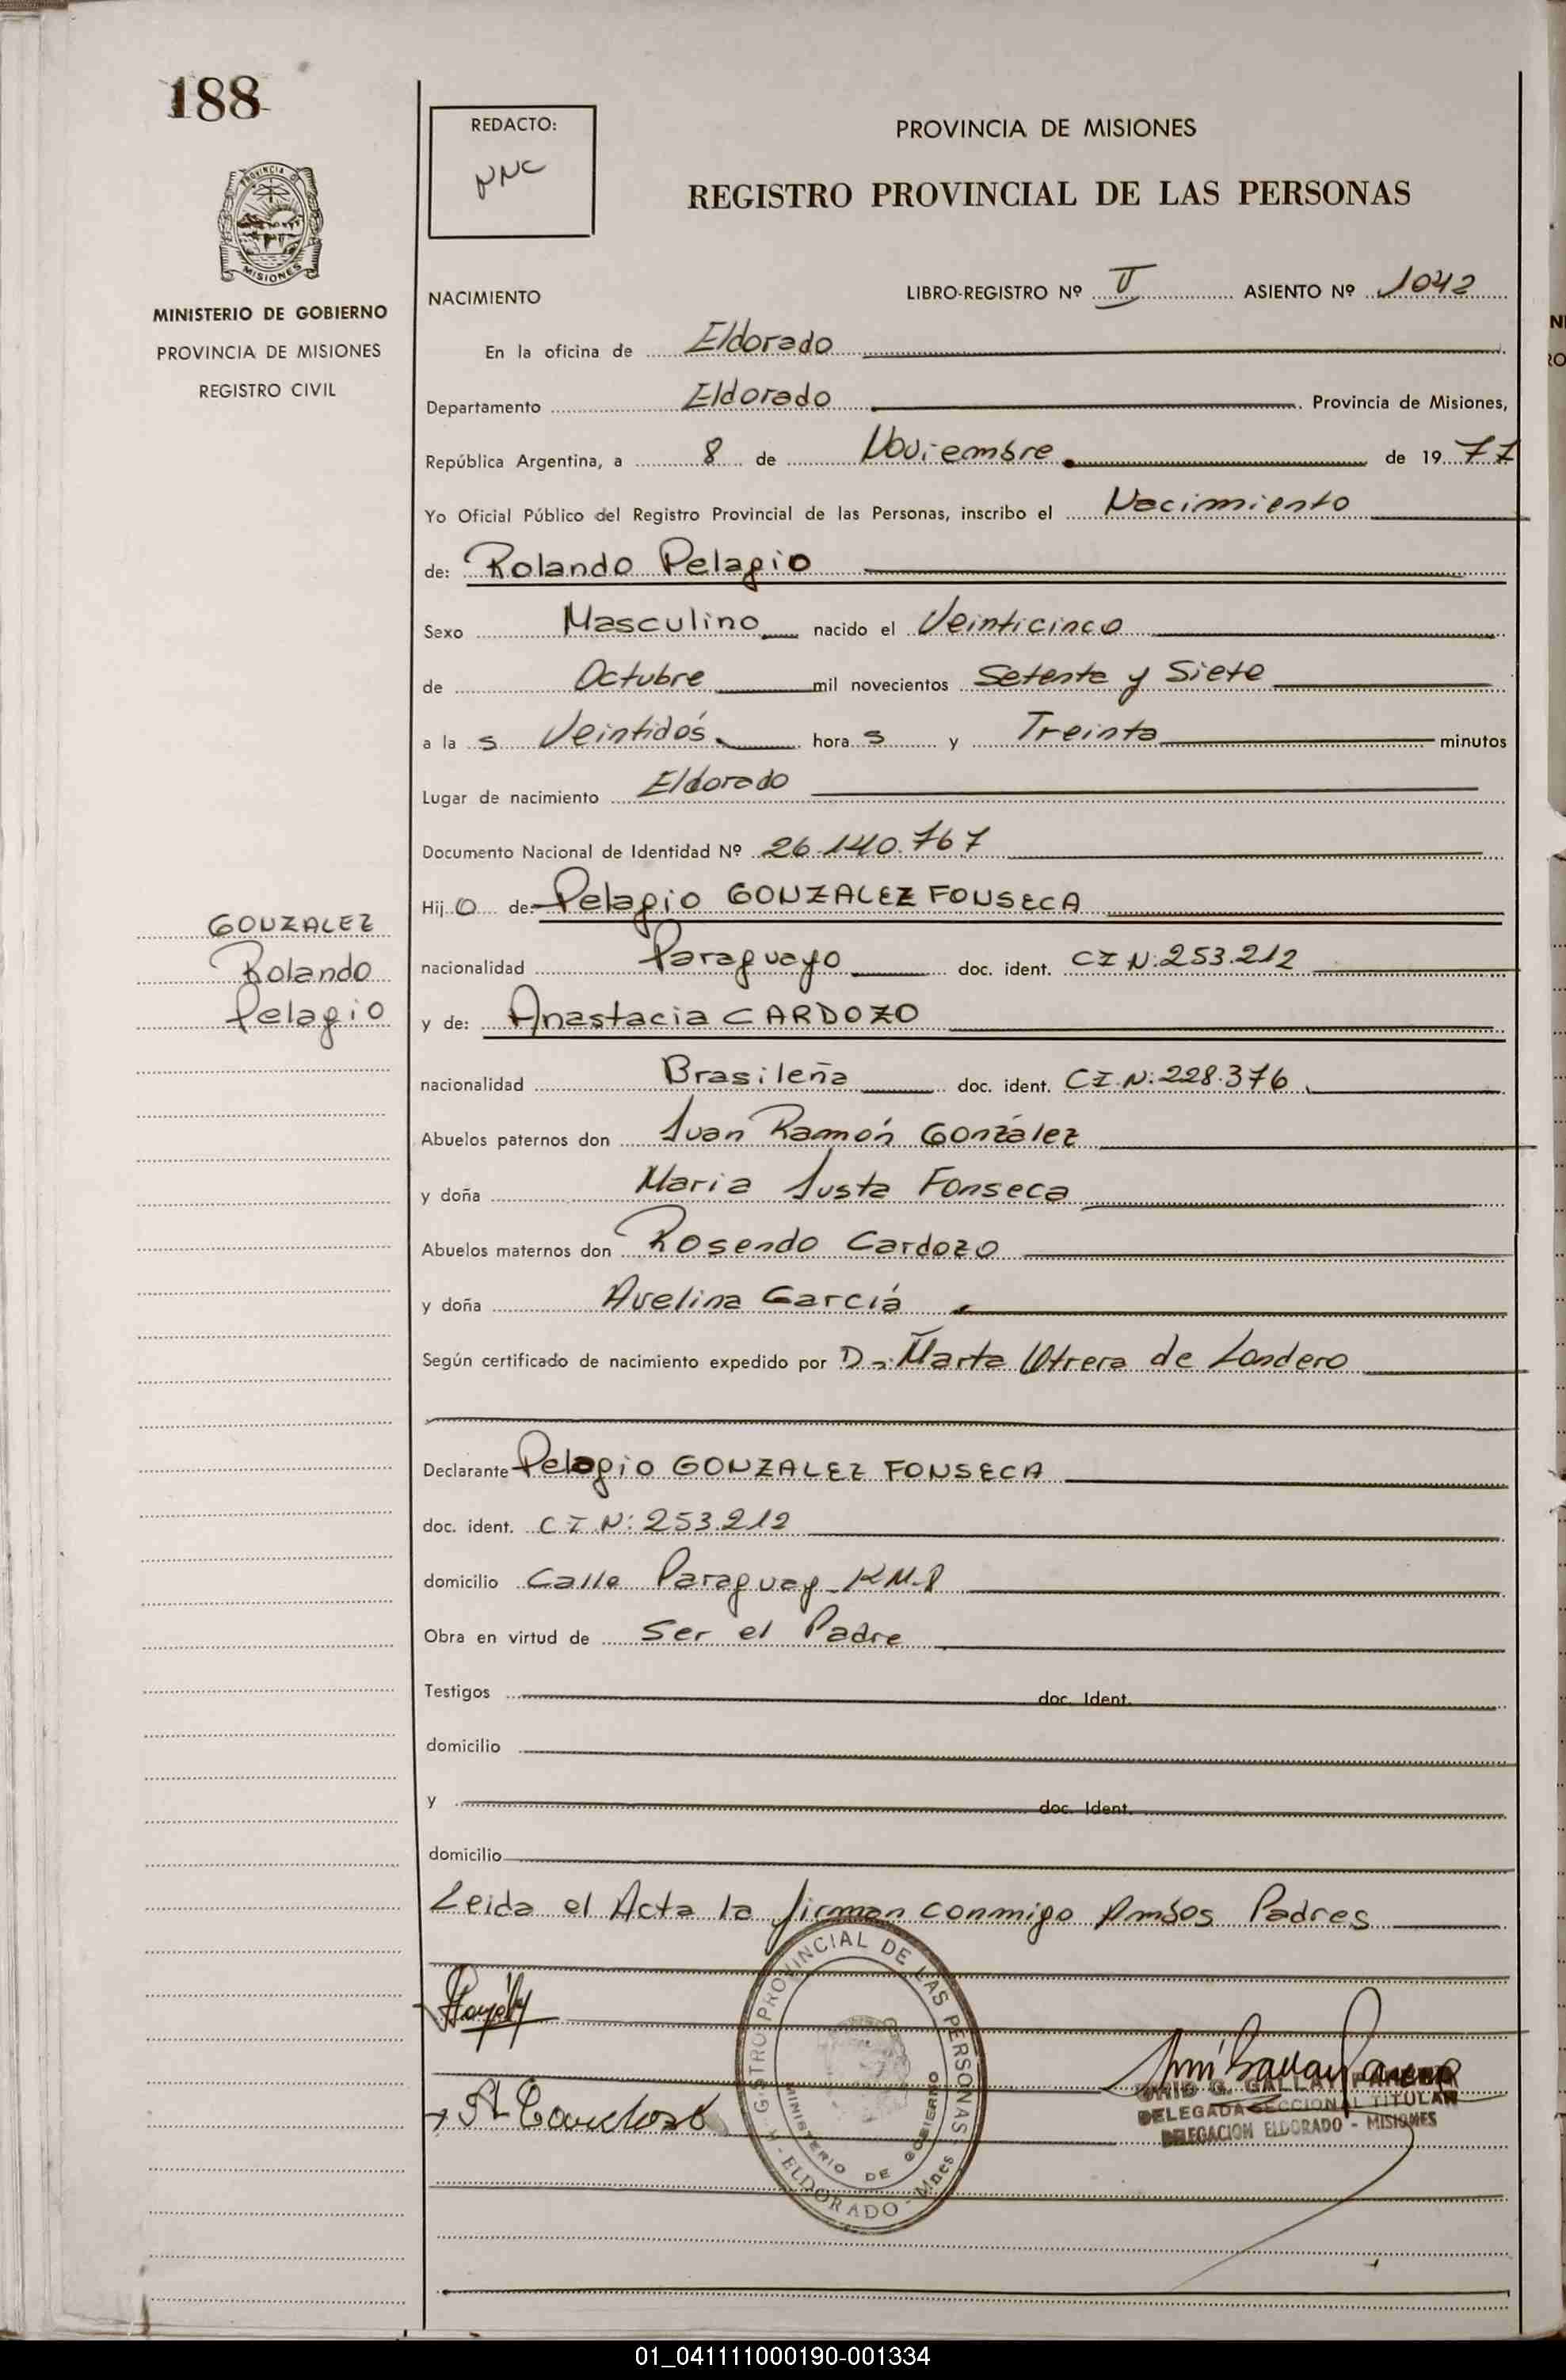 188
REDACTO:
NNC
PROVINCIA DE MISIONES
REGISTRO PROVINCIAL DE LAS PERSONAS
PROVINCIA DE
MISIONES
MINISTERIO DE GOBIERNO
PROVINCIA DE MISIONES
REGISTRO CIVIL
NACIMIENTO
LIBRO-REGISTRO Nº II ASIENTO Nº 1042
En la oficina de Eldorado
Departamento Eldorado Provincia de Misiones,
República Argentina, a 8 de Noviembre de 1977
Yo Oficial Público del Registro Provincial de las Personas, inscribo el Nacimiento
de: Rolando Pelagio
Sexo Masculino nacido el Veinticinco
de Octubre mil novecientos Setenta y Siete
a la s Veintidós hora s y Treinta minutos
Lugar de nacimiento Eldorado
Documento Nacional de Identidad Nº 26.140.767
Hij o de: Pelagio GONZALEZ FONSECA
GONZALEZ
Rolando
Pelagio
nacionalidad Paraguayo doc. ident. CI N: 253.212
y de: Anastacia CARDOZO
nacionalidad Brasileña doc. ident. CI N: 228.376
Abuelos paternos don Juan Ramón González
y doña Maria Justa Fonseca
Abuelos maternos don Rosendo Cardozo
y doña Avelina Garciá
Según certificado de nacimiento expedido por Marta Utrera de Londero
Declarante Pelagio GONZALEZ FONSECA
doc. ident. C I N: 253.212
domicilio Calle Paraguay KM.8
Obra en virtud de Ser el Padre
Testigos doc. Ident.
domicilio
y doc. Ident.
domicilio
Leida el Acta la firman conmigo Ambos Padres
REGISTRO PROVINCIAL DE LAS PERSONAS
MINISTERIO DE GOBIERNO
ELDORADO - Mnes
A Cardozo
DELEGADA SECCIONAL TITULAR
DELEGACION ELDORADO - MISIONES
01_041111000190-001334